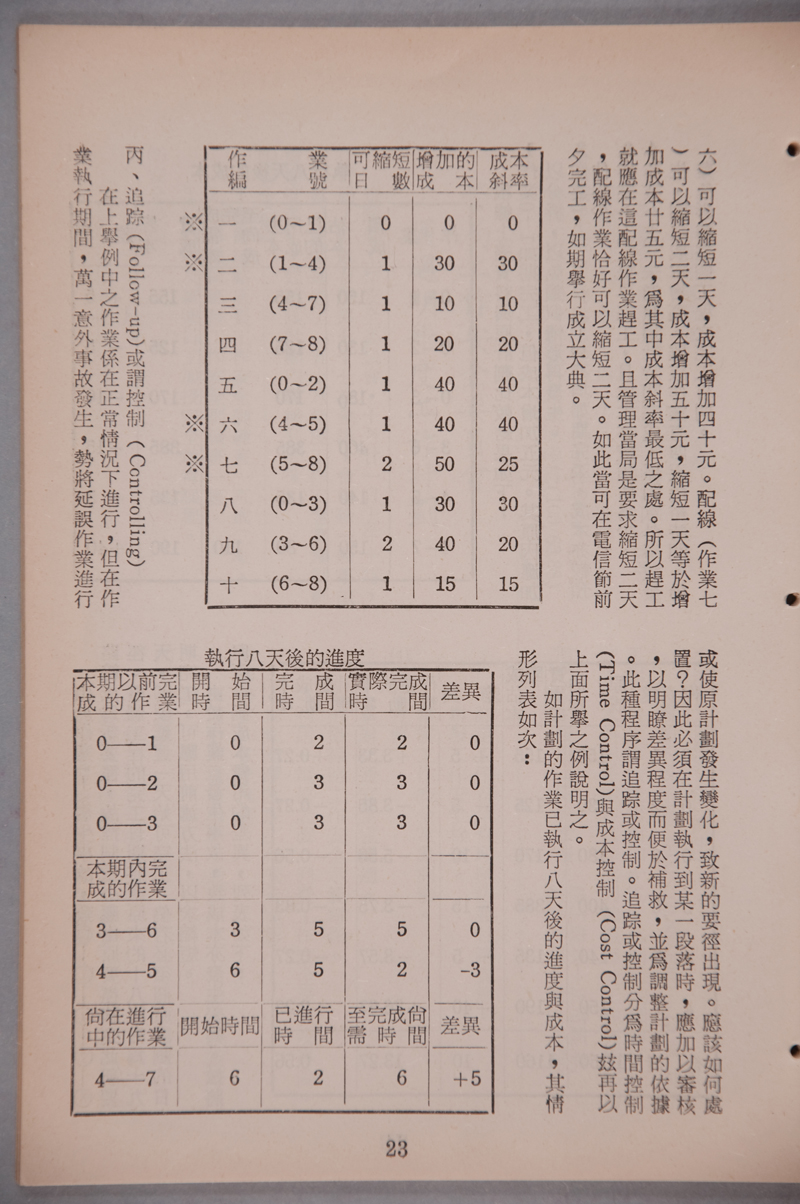 六）可以縮短一天，成本增加四十元。配線（作業七
）可以縮短二天，成本增加五十元，縮短一天等於增
加成本廿五元，爲其中成本斜率最低之處。所以趕工
就應在這配線作業趕工。且管理當局是要求縮短二天
，配線作業恰好可以縮短二天。如此當可在電信節前
夕完工，如期舉行成立大典。
作業編號 可縮短日數 增加的成本 成本斜率
※ 一 (0～1) 0 0 0
※ 二 (1～4) 1 30 30
三 (4～7) 1 10 10
四 (7～8) 1 20 20
五 (0～2) 1 40 40
※ 六 (4～5) 1 40 40
※ 七 (5～8) 2 50 25
八 (0～3) 1 30 30
九 (3～6) 2 40 20
十 (6～8) 1 15 15
丙、追踪(Follow-up)或謂控制（Controlling)
在上舉例中之作業係在正常情況下進行，但在作
業執行期間，萬一意外事故發生，勢將延誤作業進行
或使原計劃發生變化，致新的要徑出現。應該如何處
置？因此必須在計劃執行到某一段落時，應加以審核
，以明瞭差異程度而便於補救，並爲調整計劃的依據
。此種程序謂追踪或控制。追踪或控制分爲時間控制
(Time Control)與成本控制（Cost Control)玆再以
上面所舉之例說明之。
如計劃的作業已執行八天後的進度與成本，其情
形列表如次：
執行八天後的進度
本期以前完成的作業 開始時間 完成時間 實際完成時間 差異
0——1 0 2 2 0
0——2 0 3 3 0
0——3 0 3 3 0
本期內完成的作業
3——6 3 5 5 0
4——5 6 5 2 -3
尙在進行中的作業 開始時間 已進行時間 至完成尙需時間 差異
4——7 6 2 6 +5
23